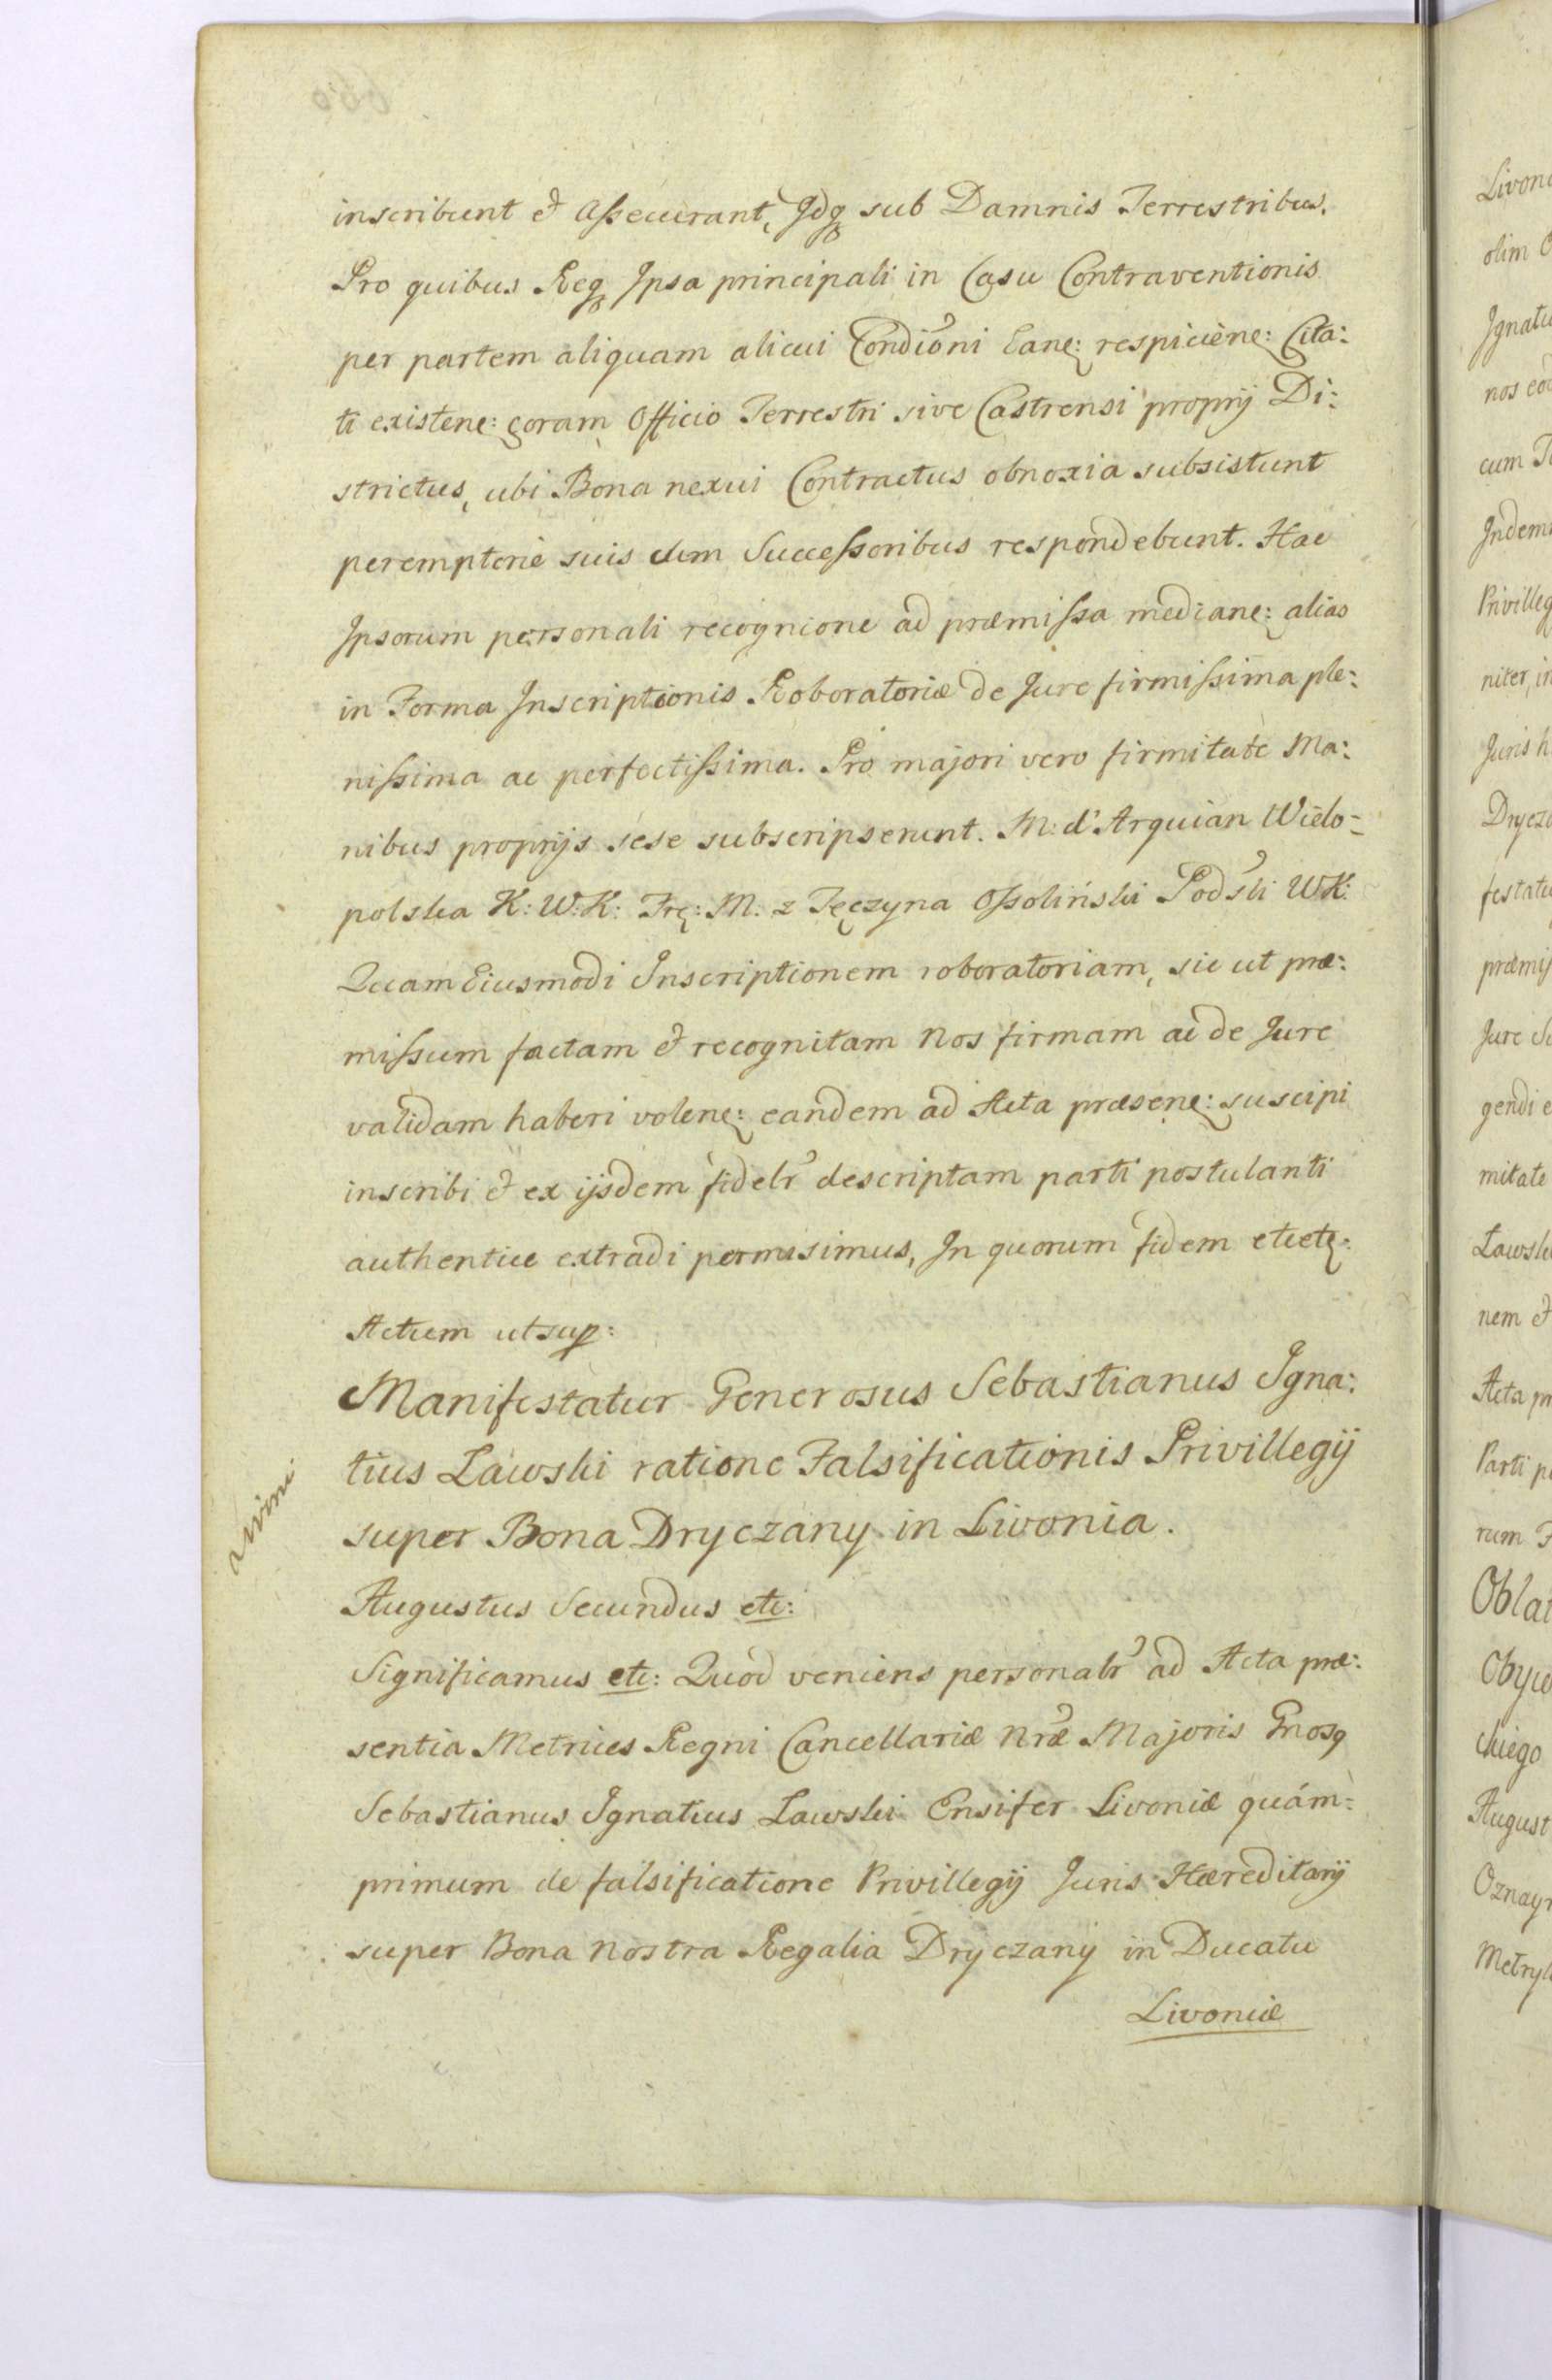 inscribunt & assecurant, Idq sub Damnis Terrestribus.
Pro quibus Req Ipsa principali in Casu Contraventionis
per partem aliquam alicui Condioni Eane: respiciene: Cita:
ti existene: coram Officio Terrestri sive Castrensi proprij Di:
strictus, ubi Bona nexui Contractus obnoxia subsistunt
peremptorie suis cum Successoribus respondebunt. Hac
Ipsorum personali recognicione ad præmissa mediane: alias
in Forma Inscriptionis Roboratoriæ de Jure firmissima ple:
nissima ac perfectissima. Pro majori vero firmitate Ma:
nibus proprijs sese subscripserunt. M: d'Arquian Wielo=
polska K: W: K: Frę: M: z Tęczyna Ossoliński Podski WK:
Quam Eiusmodi Inscriptionem roboratoriam, sic ut præ:
missum factam & recognitam Nos firmam ac de Jure
validam haberi volene: eandem ad Acta præsene: suscipi
inscribi & ex ijsdem fidelr descriptam parti postulanti
authentice extradi permisimus, In quorum fidem etcetę:
Actum ut sup:
Manifestatur Generosus Sebastianus Igna:
tius Lawski ratione Falsificationis Privillegij
super Bona Dryczany in Livonia.
Augustus Secundus etc:
Significamus etc: Quod veniens personalr ad Acta præ:
sentia Metrices Regni Cancellariæ Nræ Majoris Gnosq
Sebastianus Ignatius Lawski Ensifer Livoniæ quám=
primum de falsificatione Privillegij Juris Hæreditarij
super Bona nostra Regalia Dryczany in Ducatu
Livoniæ
Livon
olim
Ignatiu
nos
cum
Indem
Privilleg
niter, in
Juris h
Drycza
festatu
præmis
Jure
gendi e
mitate
Lawsk
nem &
Acta pr
Parti p
rum F
Oblat
Obyw
skiego
August
Oznay
Metryk